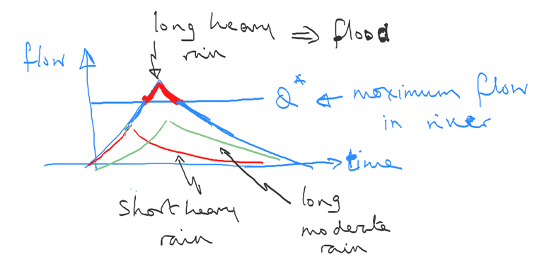 long heavy
rain
⇒ flood
flow
Q* ← maximum flow
in river
time
short heavy
rain
long
moderate
rain